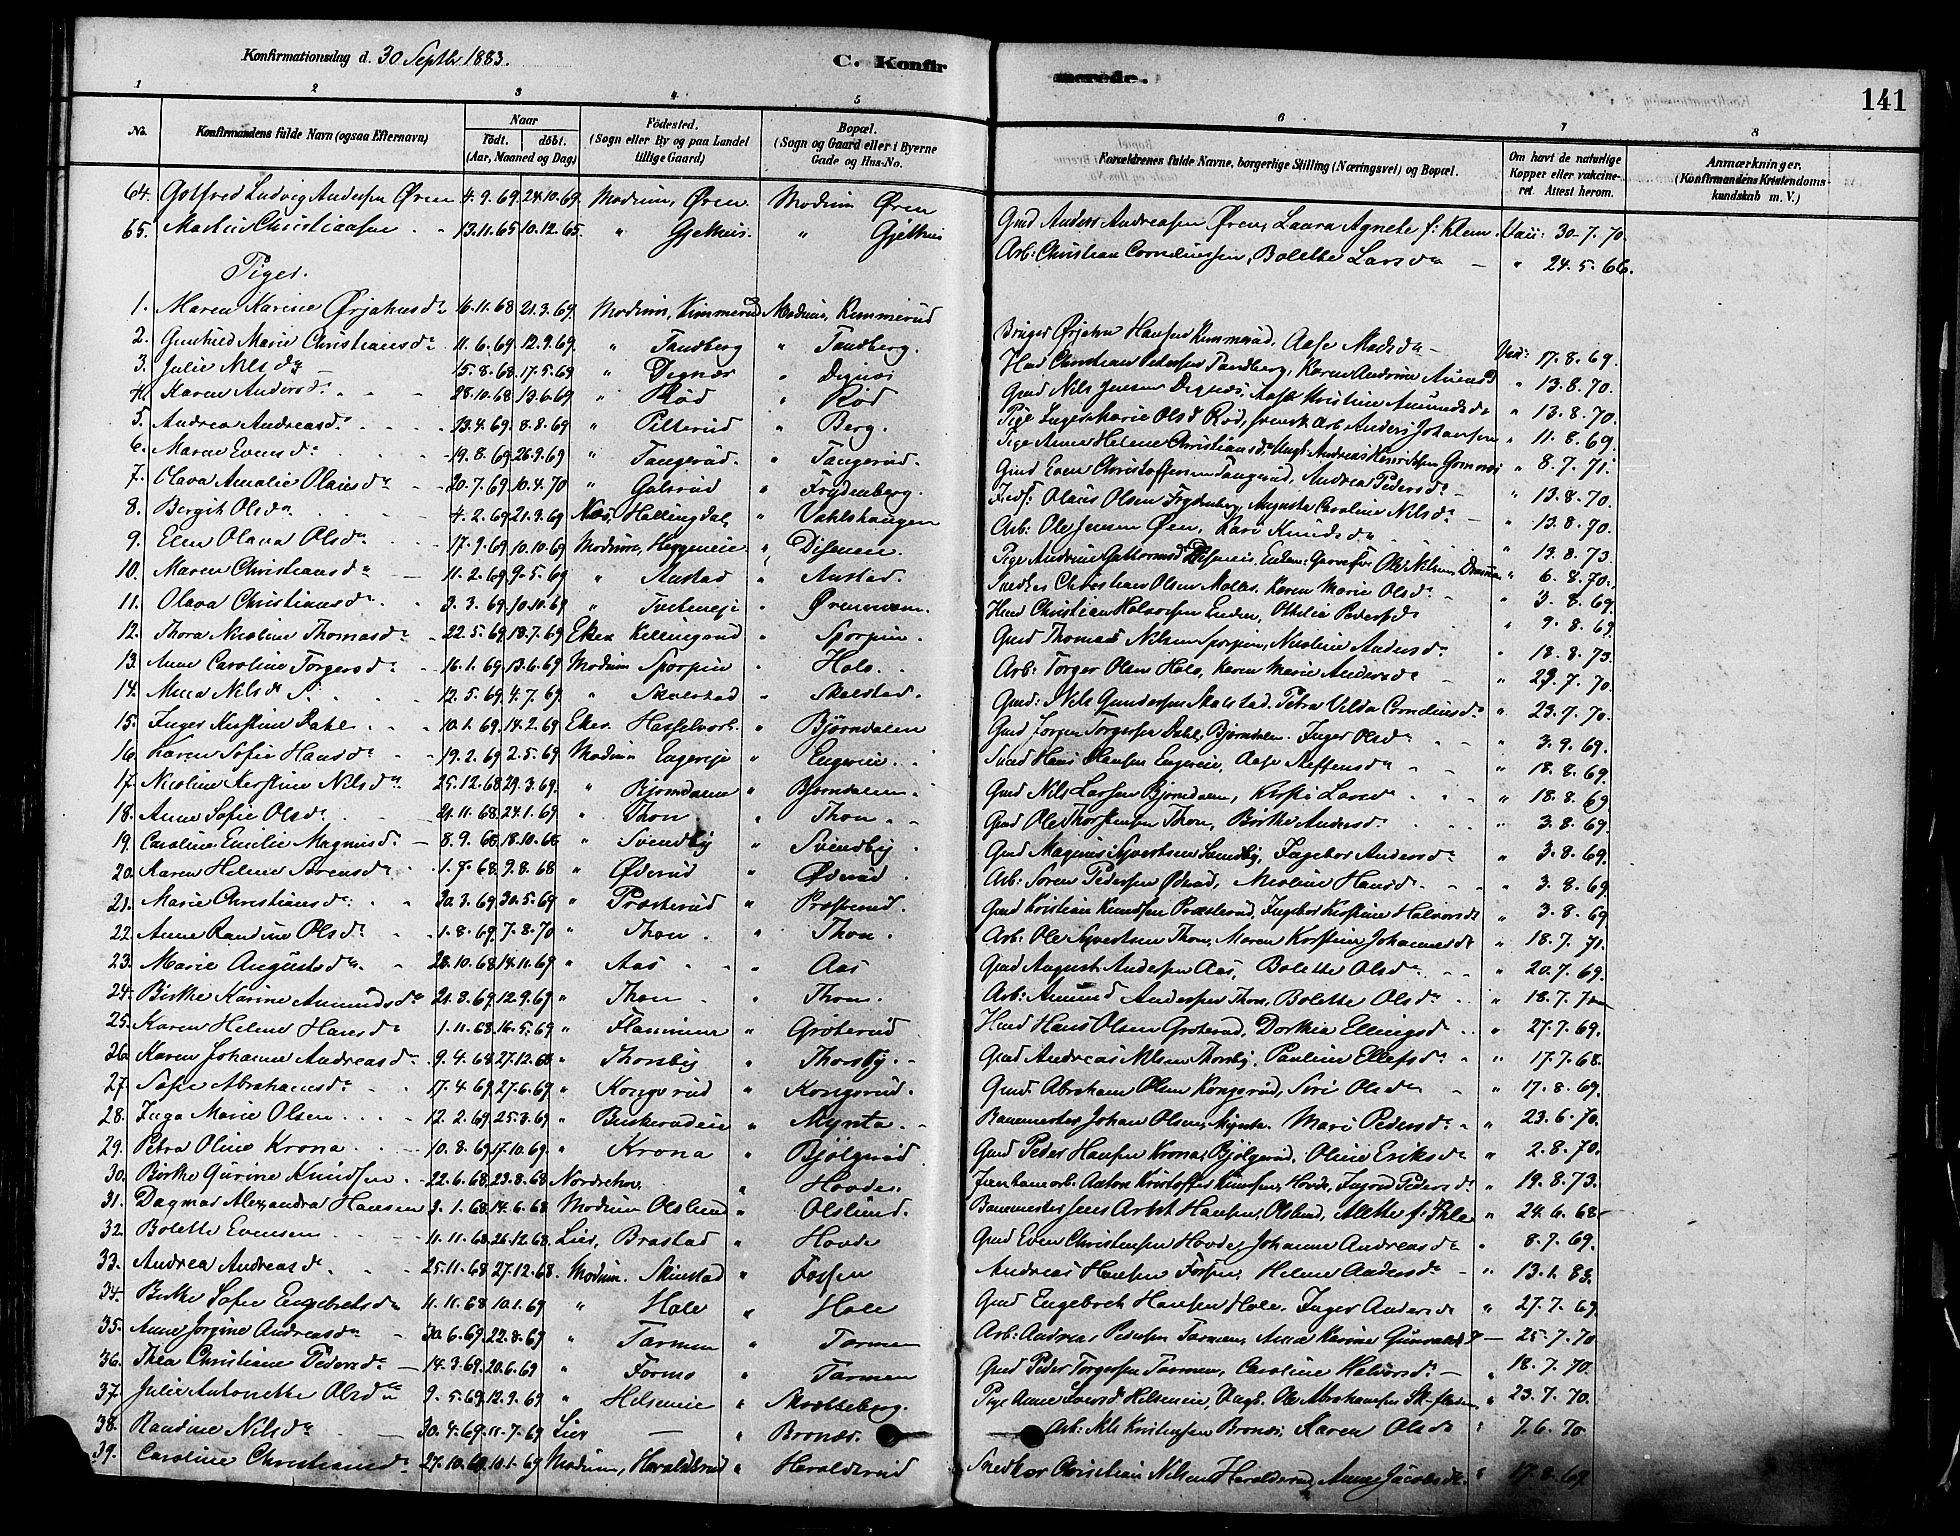 Konfirmationsdag d. 30 Septbr 1883.
C. Konfir
merede.
141
1 2 3 4 5 6 7 8
No.
Konfirmandens fulde Navn (ogsaa Efternavn)
Naar
födt. döbt.
(Aar, Maaned og Dag)
Födested.
(Sogn eller By og paa Landet
tillige Gaard)
Bopæl.
(Sogn og Gaard eller i Byerne
Gade og Hus-No.
Forældrenes fulde Navne, borgerlige Stilling (Næringsvei) og Bopæl.
Om havt de naturlige
Kopper eller vakcine-
ret. Attest herom.
Anmærkninger.
(Konfirmandens Kristendoms-
kundskab m. V.)
64. Gotfred Ludvig Andersen Øren 4.9.69 24.10.69. Modum, Øren Modum Øren Gmd Anders Andreassen Øren, Laura Agnete f: Klem Vacc: 30.7.70.
65. Martin Christiansen 13.11.65 10.12.65. " Gjethus. " Gjethus Arb: Christian Corneliussen, Bolette Larsdr " 24.5.66.
Piger.
1. Maren Karine Ørjansdr 16.11.68 21.3.69. Modum, Kimmerud Modum, Kimmerud Bruger Ørjahn Hansen Kimmerud, Aase Madsdr Vacc: 17.8.69.
2. Gunhild Marie Christiansdr 11.6.69 12.9.69. " Tandberg " Tandberg. Christian Pedersen Tandberg, Karen Andrine " 13.8.70.
3. Julie Nilsdr 15.8.68 17.5.69 " Degnæs " Degnæs Gmd Nils Jensen Degnæs, Kristine Amundsdr " 13.8.70.
4. Karen Andersdr 28.10.68 13.6.69 " Rød " Rød Pige Inger Marie Olsd Rød, svensk Arb Anders Johansen " 11.8.69.
5. Andrea Andreasdr 23.4.69 8.8.69 " Pitterud " Berg. Pige Anne Helene Christiansdr, Ungk Andreas " 8.7.71.
6. Maren Evensdr 19.8.69 26.9.69 " Tangerud. " Tangerud. Gmd Even Christoffersen Tangerud, Andrea Pedersdr " 13.8.70.
7. Olava Amalie Olausdr 20.7.69 10.4.70 " Galsrud " Frydenberg. Olaus Olsen Frydenberg, Auguste Caroline Nilsdr " 13.8.70.
8. Bergit Olsdr 4.2.69 21.3.69 Næs, Hallingdal " Vahlshaugen Arb: Ole Jensen Øen, Kari Knudsdr " 13.8.73.
9. Elen Olava Olsdr 17.9.69 10.10.69 Modum, Heggeneie " Diseneie. Pige Andrine Guttormsd Diseneie " 6.8.70.
10. Maren Christiansdr 11.2.69 9.5.69 " Austad " Austad. Snedker Christian Olsen, Karen Marie Olsdr " 3.8.69.
11. Olava Christiansdr 3.3.69 10.10.69 " Tveteneje " Christian Halvorsen, Othilie Pedersdr " 9.8.69
12. Thora Nicoline Thomasdr 22.5.69 18.7.69 Eker Kellingrud " Sporpin. Gmd Thomas Nilsen Sporpin, Nicoline Andersdr " 18.8.73.
13. Anne Caroline Torgersdr 16.1.69 13.6.69 Modum Sporpin " Hals. Arb: Torger Olsen Hals, Karen Marie Andersdr " 29.7.70.
14. Anna Nilsdr 12.5.69 4.7.69 " Skalstad " Skalstad. Gmd: Nils Gundersen Skalstad, Petra Vilda Corneliusdr " 23.7.70.
15. Inger Kirstine Dahl 10.1.69 14.2.69 Eker. " Bjørndalen Gmd Torgersen Dahl, Bjørndalen. Inger Olsdr " 3.9.69.
16. Karen Sofie Hansdr 19.2.69 2.5.69 Modum Engereje " Engereie. Smed Hans Hansen Engereie, Aase Steffensdr " 18.8.69.
17. Nicoline Kirstine Nilsdr 25.12.68 29.3.69. " Bjørndalen " Bjørndalen. Gmd Nils Larsen Bjørndalen, Kirsti Larsdr " 18.8.69.
18. Anne Sofie Olsdr 21.11.68 24.1.69 " Thon " Thon. Gmd Ole Thorstensen Thon, Birthe Andersdr " 3.8.69.
19. Caroline Emilie Magnusdr 8.9.68 18.10.68 " Svendby " Svendby. Gmd Magnus Syvertsen Svendby, Ingebor Andersdr " 3.8.69.
20. Karen Helene Sørensdr 1.7.68 9.8.68 " Øderud " Øderud. Arb: Søren Pedersen Øderud, Nicoline Hansdr " 3.8.69.
21. Marie Christiansdr: 30.3.69 30.5.69 " Præsterud " Præsterud. Gmd Kristian Knudsen Præsterud, Ingebor Kirstine Halvorsdr " 3.8.69
22. Anne Randine Olsdr 1.8.69 7.8.70 " Thon. " Thon. Arb: Ole Syvertsen Thon, Maren Kirstine Johannesdr " 18.7.71.
23. Marie Augustsdr. 28.10.68 14.11.69 " Aas " Aas Gmd August Andersen Aas, Bolette Olsdr " 20.7.69.
24. Birthe Karine Amundsdr 21.8.69 12.9.69 " Thon " Thon. Arb: Amund Andersen Thon, Bolette Olsdr " 18.7.70
25. Karen Helene Hansdr 1.11.68 16.5.69 " " Grøterud Hans Olsen Grøterud, Dorthia Ellingsdr " 27.7.69.
26. Karen Johanne Andreasdr 9.4.68 27.12.68 " Thorsby " Thorsby. Gmd Andreas Nilsen Thorsby, Pauline Ellefsdr " 17.7.68.
27. Sofie Abrahamsdr 17.4.69 27.6.69 " Kongsrud " Kongsrud. Gmd: Abraham Olsen Kongsrud, Siri Olsdr " 17.8.69.
28. Inga Marie Olsen 12.2.69 25.3.69 " Buskerudeie " Mynta. Banemester Johan Olsen, Mynta. Mari Pedersdr " 23.6.70.
29. Petra Oline Krona 10.8.69 17.10.69. " Krona " Bjølgerud Gmd Peder Hansen Krona, Bjølgerud, Oline Eriksdr " 2.8.70.
30. Birthe Gurine Knudsen 22.6.68 23.8.68 Norderhov. " Hovde. Jernbanearb: Anton Kristoffer Knudsen, Hovde, Ingrid Pedersdr. " 19.8.73.
31. Dagmar Alexandra Hansen 3.1.68 14.6.68 Modum Olslund " Olslund. Banemester Jens Hansen, Olslund, Alette f: Ihle " 24.6.68
32. Bolette Evensen 11.11.68 26.12.68. Lier, Brastad " Hovde Gmd Even Christensen Hovde, Johanne Andreasdr " 8.7.69.
33. Andrea Andreasdr 25.11.68 27.12.68. Modum. Skinstad " Fossen Andreas Hansen Fossen, Helene Andersdr " 13.1.83.
34. Birthe Sofie Engebretsdr 11.11.68 10.1.69 " Hole " Hole Gmd Engebret Hansen Hole, Inger Andersdr " 27.7.69.
35. Anne Jorgine Andreasdr 30.6.69 22.8.69 " Tarmen " Tarmen Arb: Andreas Pedersen Tarmen, Anne Karine Gunvaldsd — 25.7.70
36. Thea Christiane Pedersdr 14.3.69 20.6.69 " Formo " Tarmen Gmd Peder Torgersen Tarmen, Caroline Halvorsdr " 18.7.70.
37. Julie Antonette Olsdr 9.5.69 12.9.69 " Helseneie " Skotteberg. Pige Anne Iversd Helseneie, Ungk. Ole Abrahamsen " 23.7.70.
38. Randine Nilsdr 30.4.69 11.7.69 Lier — " Bronæs. Arb: Nils Kristensen Bronæs, Karen Olsdr " 7.6.70
39. Caroline Christiansdr 27.10.68 10.1.69 Modum, Haraldsrud " Haraldsrud Snedker Christian Nilsen Haraldsrud, Anne Jacobsdr. " 17.8.69.